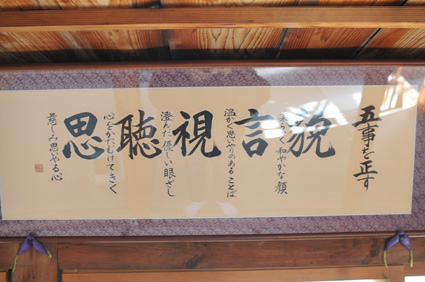 五事を正す
貌
まろやく和やかな顔
言
温かく思いやりのあることば
視
澄んだ優しい眼ざし
聴
心をかたむけてきく
思
慈しみ思やる心